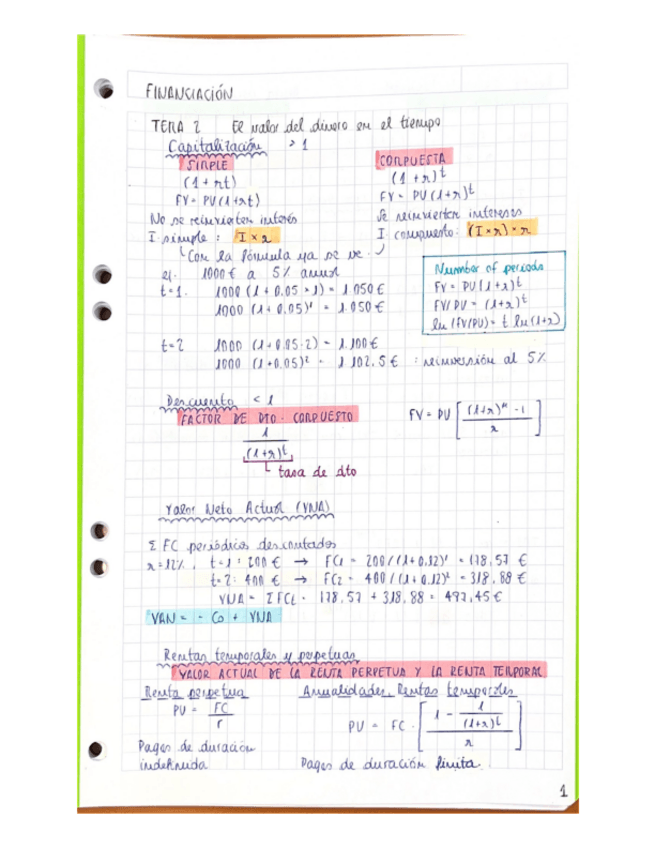 FINANCIACIÓN
TEMA 2 El valor del dinero en el tiempo
Capitalización > 1
SIMPLE
(1 + rt)
FV = PV(1+rt)
No se reinvierten interés
I simple : I x r
Con la fórmula ya se ve.
COMPUESTA
(1 + r)^t
FV = PV(1+r)^t
Se reinvierten intereses
I compuesto: (I×r)×r
ej. 1000 € a 5% anual
t=1. 1000 (1 + 0.05 · 1) = 1.050 €
1000 (1 + 0.05)¹ = 1.050 €
t=2 1000 (1+0.05·2) = 1.100 €
1000 (1+0.05)² = 1.102,5 € : reinversión al 5%
Number of periods
FV = PV(1+r)^t
FV/PV = (1+r)^t
ln (FV/PV) = t ln(1+r)
Descuento < 1
FACTOR DE DTO. COMPUESTO
1
(1+r)^t
tasa de dto
FV = PV [ (1+r)^n - 1 / r ]
Valor Neto Actual (VNA)
Σ FC periódicos descontados
r=12%. t=1: 200 € → FC1 = 200/(1+0.12)¹ = 178,57 €
t=2: 400 € → FC2 = 400/(1+0.12)² = 318,88 €
VNA = ΣFCt = 178,57 + 318,88 = 497,45 €
VAN = - Co + VNA
Rentas temporales y perpetuas
VALOR ACTUAL DE LA RENTA PERPETUA Y LA RENTA TEMPORAL
Renta perpetua
PV = FC / r
Pagos de duración
indefinida
Anualidades. Rentas temporales
PV = FC · [ 1 - 1/(1+r)^t / r ]
Pagos de duración finita.
1